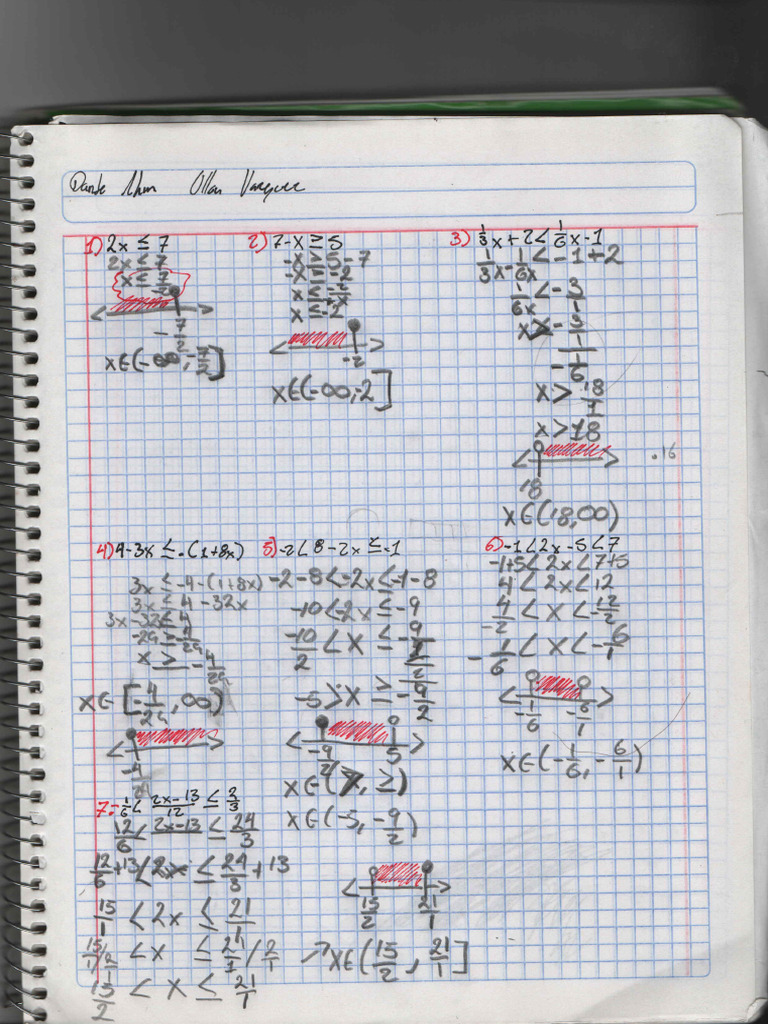 1) 2x ≤ 7
2x ≤ 7
x ≤ 7/2
-7/2
x∈(-∞, -7/2]
2) 7-x ≥ 5
-x ≥ 5-7
-x ≥ -2
x ≤ -2/-x
x ≤ -2
-2
x∈(-∞,-2]
3) 1/3x+2<1/6x-1
1/3x-1/6x<-1+2
1/6x<-3/1
x>-3/1/-1/6
x>18/1
x>18
18
.16
x∈(18,∞)
4) 4-3x≤-(1+8x)
3x≤-4-(1+8x)
3x≤4-32x
3x-32≤4
-29≥4/29
x≥-4/29
x∈[-4/29,∞)
-4/29
5) -2<8-2x≤-1
-2-8<-2x≤-1-8
-10<-2x≤-9
-10/2<x≤-9/2
-5>x≥-9/2
-9/2 5
x∈(-5,-9/2)
6) -1<2x-5<7
-1+5<2x<7+5
4<2x<12
4/-2<x<-12/2
-1/6<x<-6/1
-1/6 -6/1
x∈(-1/6,-6/1)
7.- -1/6<2x-13/12≤2/3
12/6<2x-13≤24/3
12/6+13<2x≤24/3+13
15/1<2x≤21/1
15/1/2<x≤21/1/2/1
15/2<x≤21/1
15/2 21/1
→x∈(15/2,21/1]